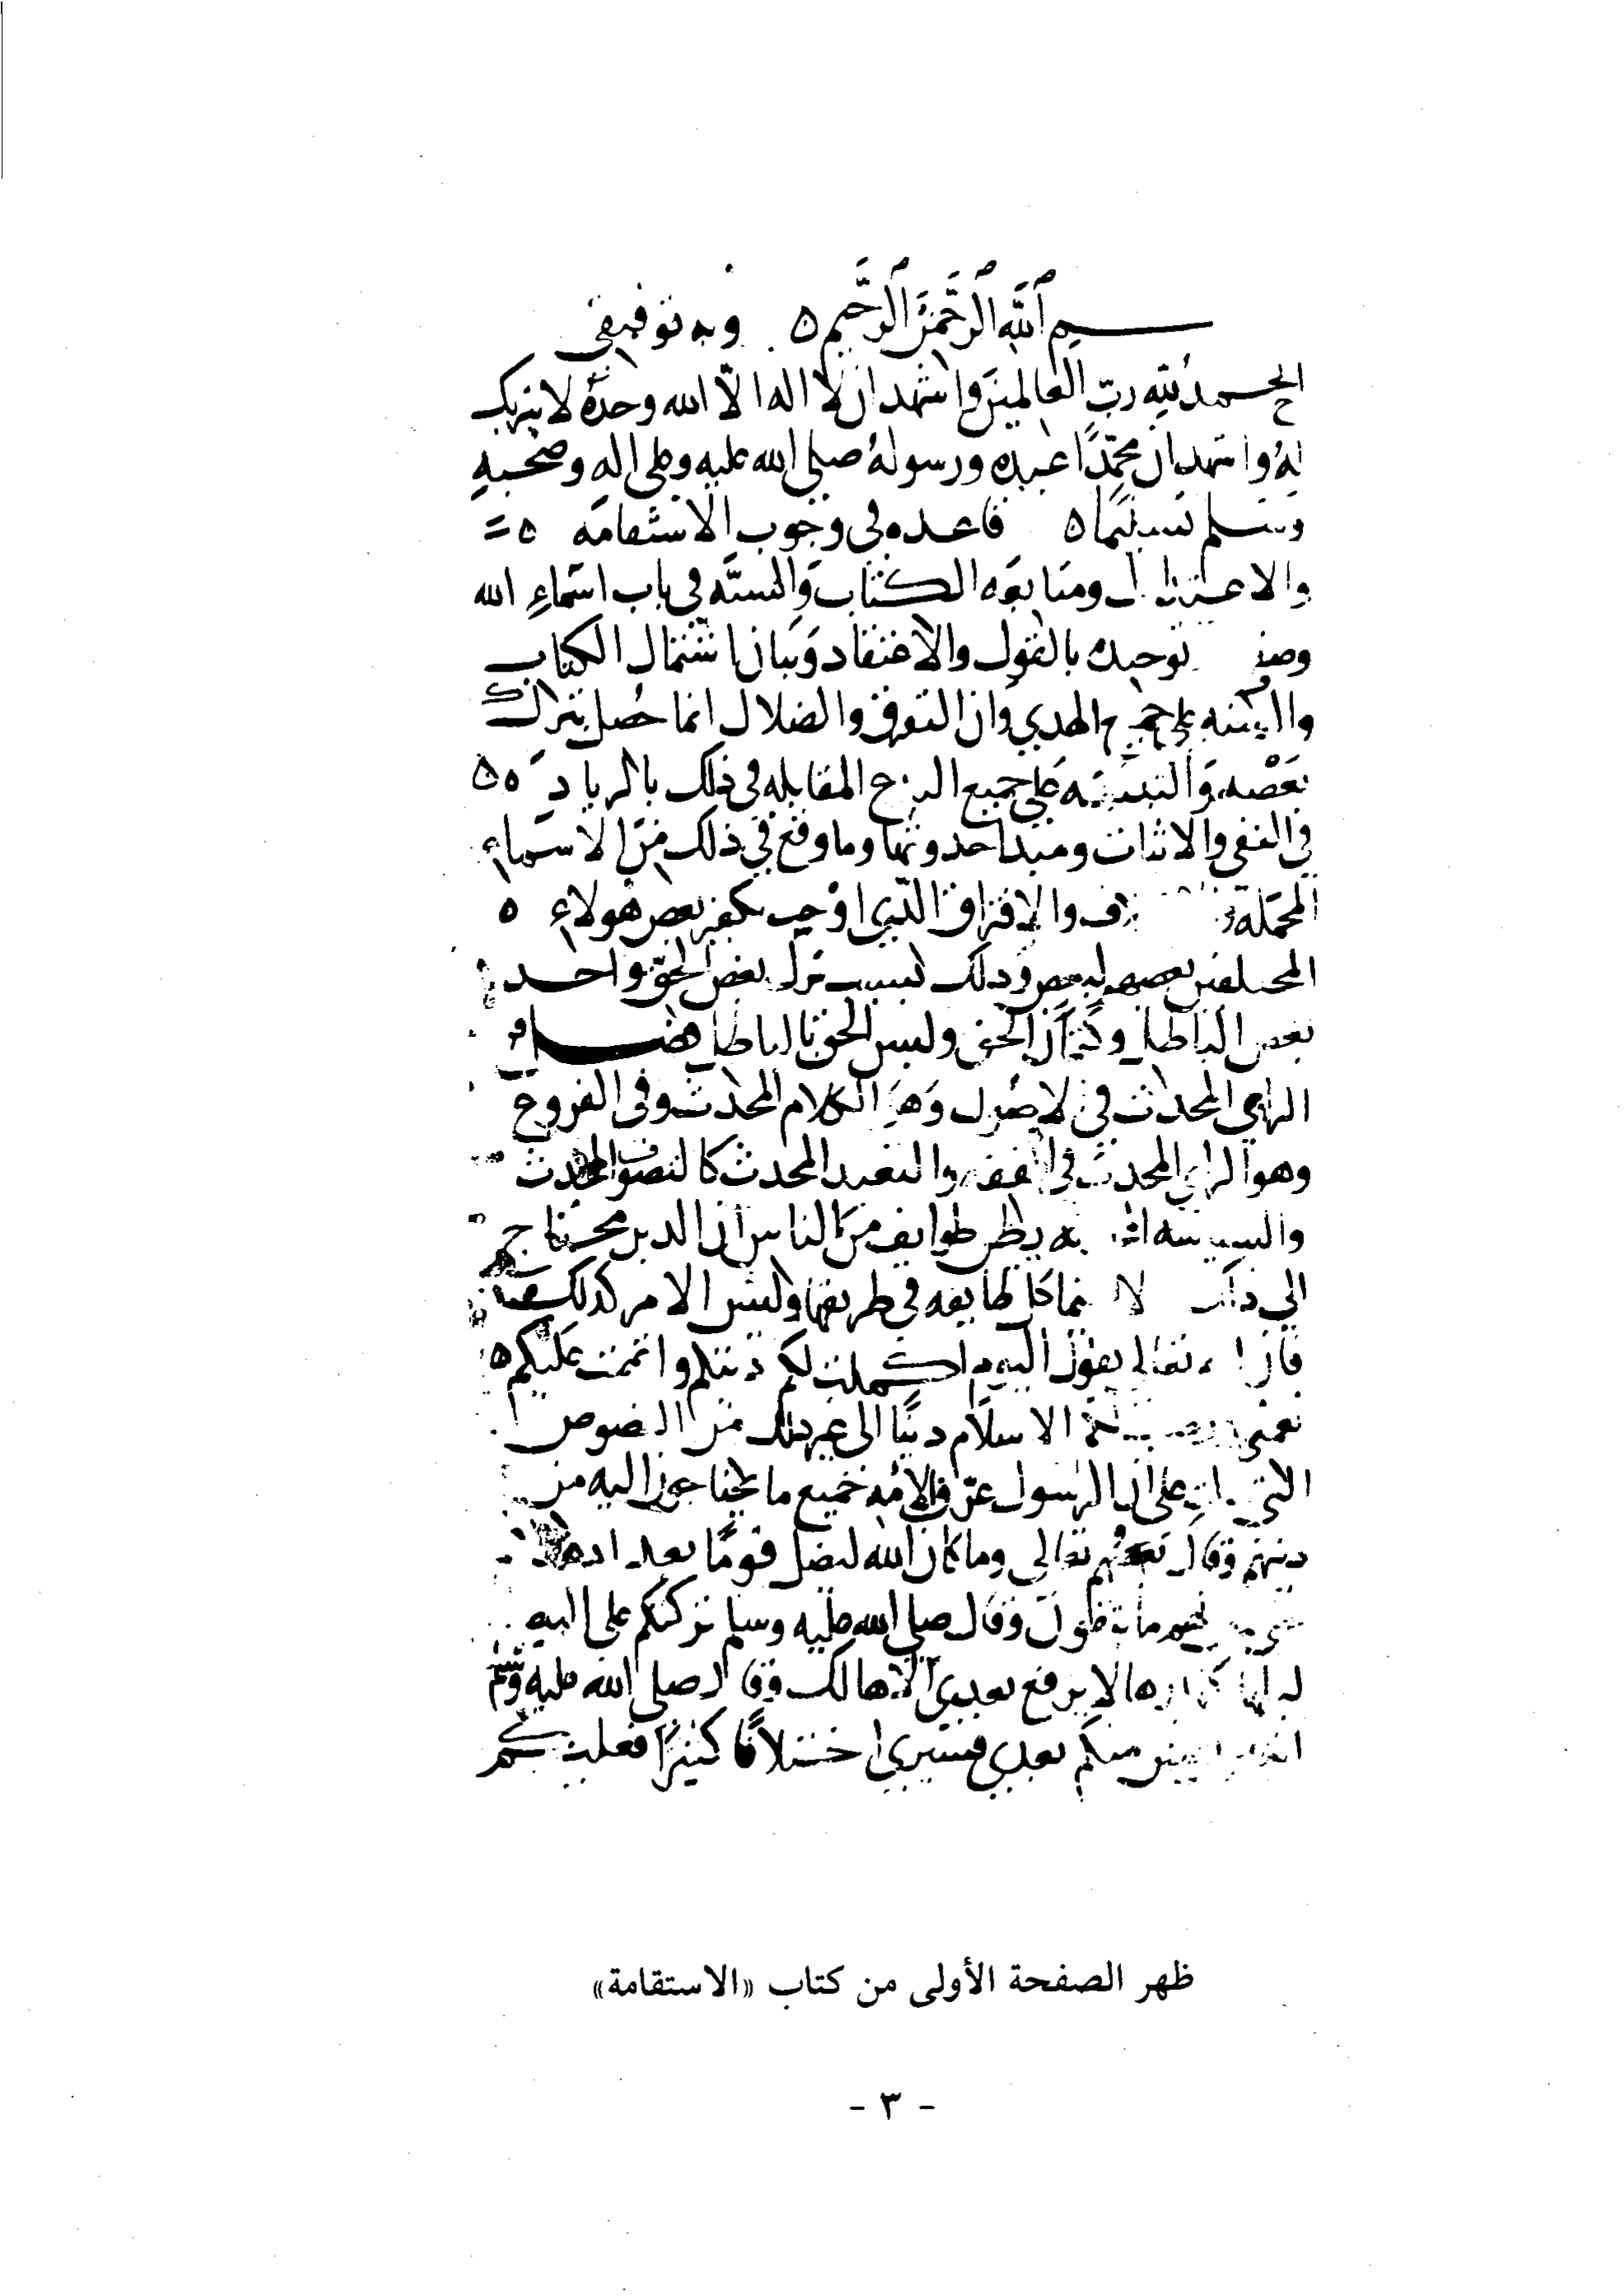 بسم ٱللَّه ٱلرَّحْمَنِ ٱلرَّحِيم ٥ وبه توفيقي
الحمدُ لله ربّ العالمينَ واشهد ان لا اله الّا الله وحدهُ لا شريك
لهُ واشهد ان محمّدًا عبده ورسولهُ صلى الله عليه وعلى اله وصحبهِ
وسلم تسليمًا ٥ قاعده في وجوب الاستقامَه ٥ =
والاعتدال ومتابعَه الكتاب وَالسنَّه في باب اسمَاءِ الله
وتوحيده بالقول والاعتقاد وَبيان اشتمال الكتاب
والسنه على جميع الهدي وَان التفرق والضلال انما حُصل بترك
بعَضْه وَالتنبيه عَلى جميع البدع المقابله في ذلك بالزياد ٥٥
في النفي والاثبات ومبدا حدوثها وما وقع في ذلك منَ الاسمَاءِ
المجمَله والاختلاف والافتراق الذي اوْجب تكفير بعض هولاءِ ٥
المختلفين بعضهم لبعض وذلك بسبب ترك بعض الحقّ واخذ
بعض الباطل وكتمَان الحق ولبس الحق بالباطل فصل
الراي المحدث في الاصُول وَهوَ الكلام المحدث وفي الفروع
وهو الراي المحدث في الفقه والتعبد المحدث كالتصوف المحدث
والسياسه يظن طوايف منَ الناس ان الدين محتاج
الى ذلك لا كل طايفه في طريقها وليس الامر كذلك
فان الله تعالى يقول اليوم اكملت لكم دينكم واتممت عَليكم ٥
نعمتي ورضيت لكم الاسلَام دينًا الى غير ذلك من النصوص
التي دلت على ان الرسول عرّف الامه جَميع ما يحتاجون اليه من
دينهم وقال تعالى وما كان الله ليضل قومًا بعد اذ هداهم
حتى يبين لهم ما يتقون وقال صلى الله عليه وسلم تركتكم على البيضاء
ليلها كنهارها لا يزيغ بعدي الا هالك وقال صلى الله عليه وسَلم
انه من يعش منكم بعدي فسيرى اختلافًا كثيرًا فعليكم
ظهر الصفحة الأولى من كتاب «الاستقامة»
- ٣ -